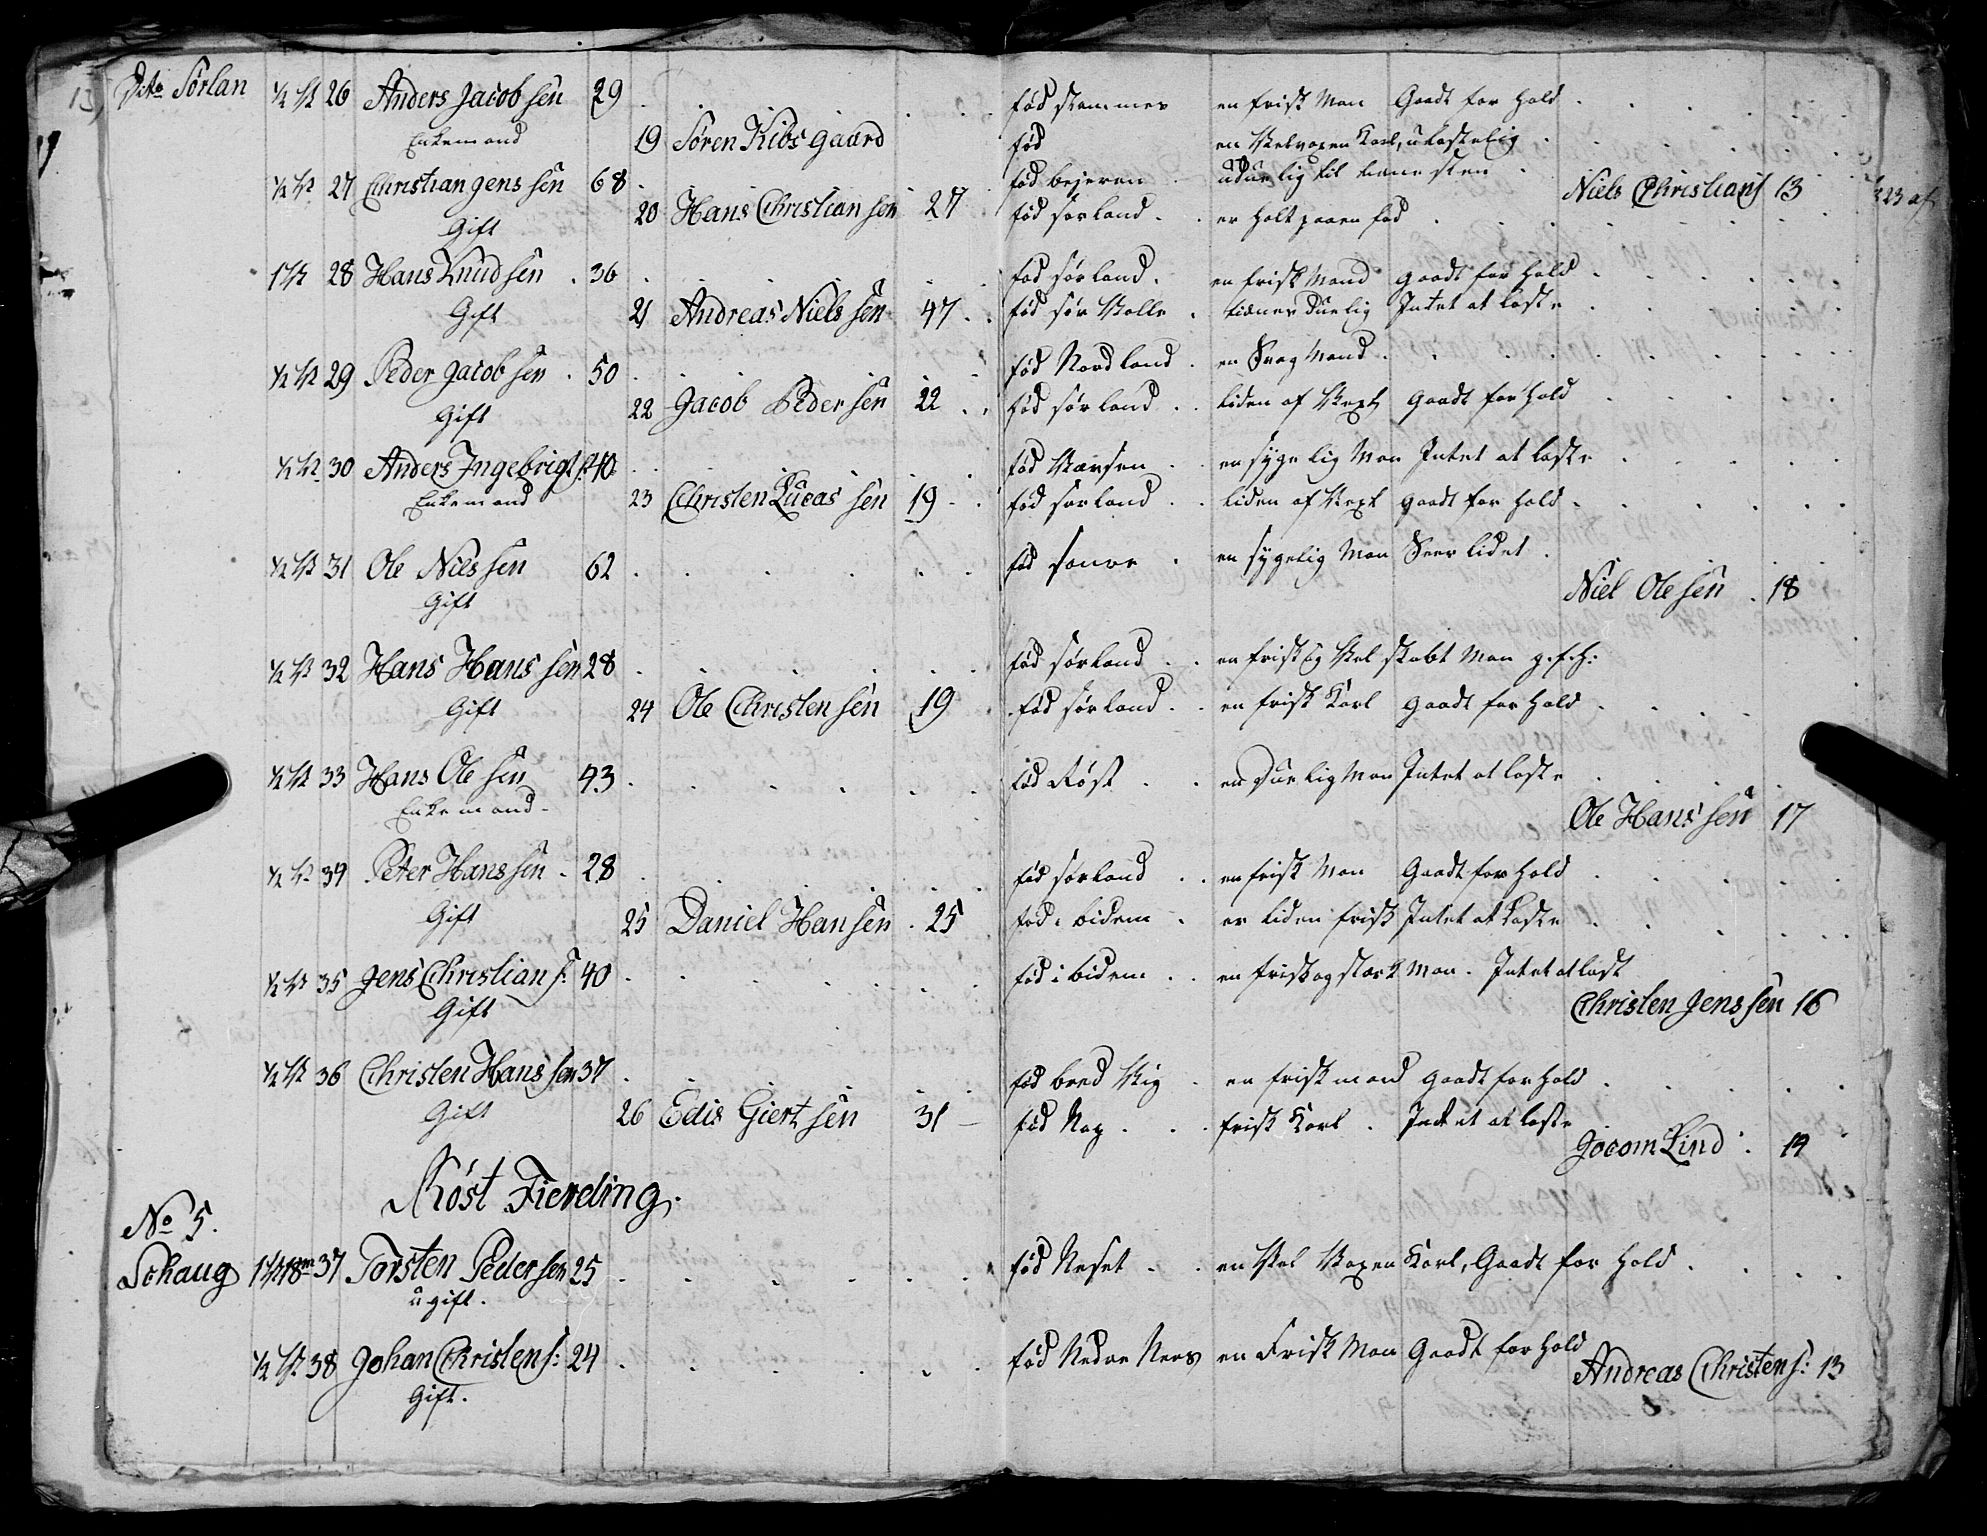 Dito Sørlan ½ 26 Anders Jacobsen 29 fød en frisk Man Gaadt for hold
Enkemand 19 Søren Kibsgaard fød en Velvoxen Karl, ulastelig
½ 27 Christian Jenssen 68 fød bejeren uduelig til tienesten Niels Christians 13
Gift 20 Hans Christiansen 27 fød sørland er halt paa en fod
1 28 Hans Knudsen 36 fød sørland en frisk Mand gaadt for hold
Gift 21 Andreas Nielssen 47 fød tiener duelig Intet at laste
½ 29 Peder Jacobsen 50 fød Nordland en Svag Mand
Gift 22 Jacob Pedersen 22 fød sørland liden af Vext gaadt for hold
½ 30 Anders Ingebrigts: 40 fød en sygelig Man Intet at laste
Enkemand 23 Christen Lucassen 19 fød sørland liden af Vext gaadt for hold
½ 31 Ole Nilssen 62 fød en sygelig Man Seer lidet
Gift Niel Olesen 18
½ 32 Hans Hanssen 28 fød sørland en frisk og Vel skabt Man g: f: h:
Gift 24 Ole Christensen 19 fød sørland en frisk Karl gaadt for hold
½ 33 Hans Olesen 43 fød Røst en Duelig Man Intet at laste
Enkemand Ole Hanssen 17
½ 34 Peter Hanssen 28 fød sørland en frisk Man Gaadt for hold
Gift 25 Daniel Hansen 25 fød ibidem er liden frisk Intet at laste
½ 35 Jens Christians: 40 fød ibidem en frisk og stærk Man Intet at last
Gift Christen Jenssen 16
½ 36 Christen Hanssen 37 fød bred Vig en frisk mand gaadt for hold
Gift 26 Edis Giertsen 31 fød Nap frisk Karl Intet at laste
Jocom Lind 14
Røst Fierding
No 5.
Schaug 1 18 37 Torsten Pedersen 25 fød Neset en Vel Voxen Karl, Gaadt for hold
ugift.
½ 38 Johan Christens: 24 fød Nedre en Frisk Man Gaadt for hold Andreas Christens: 13
Gift.